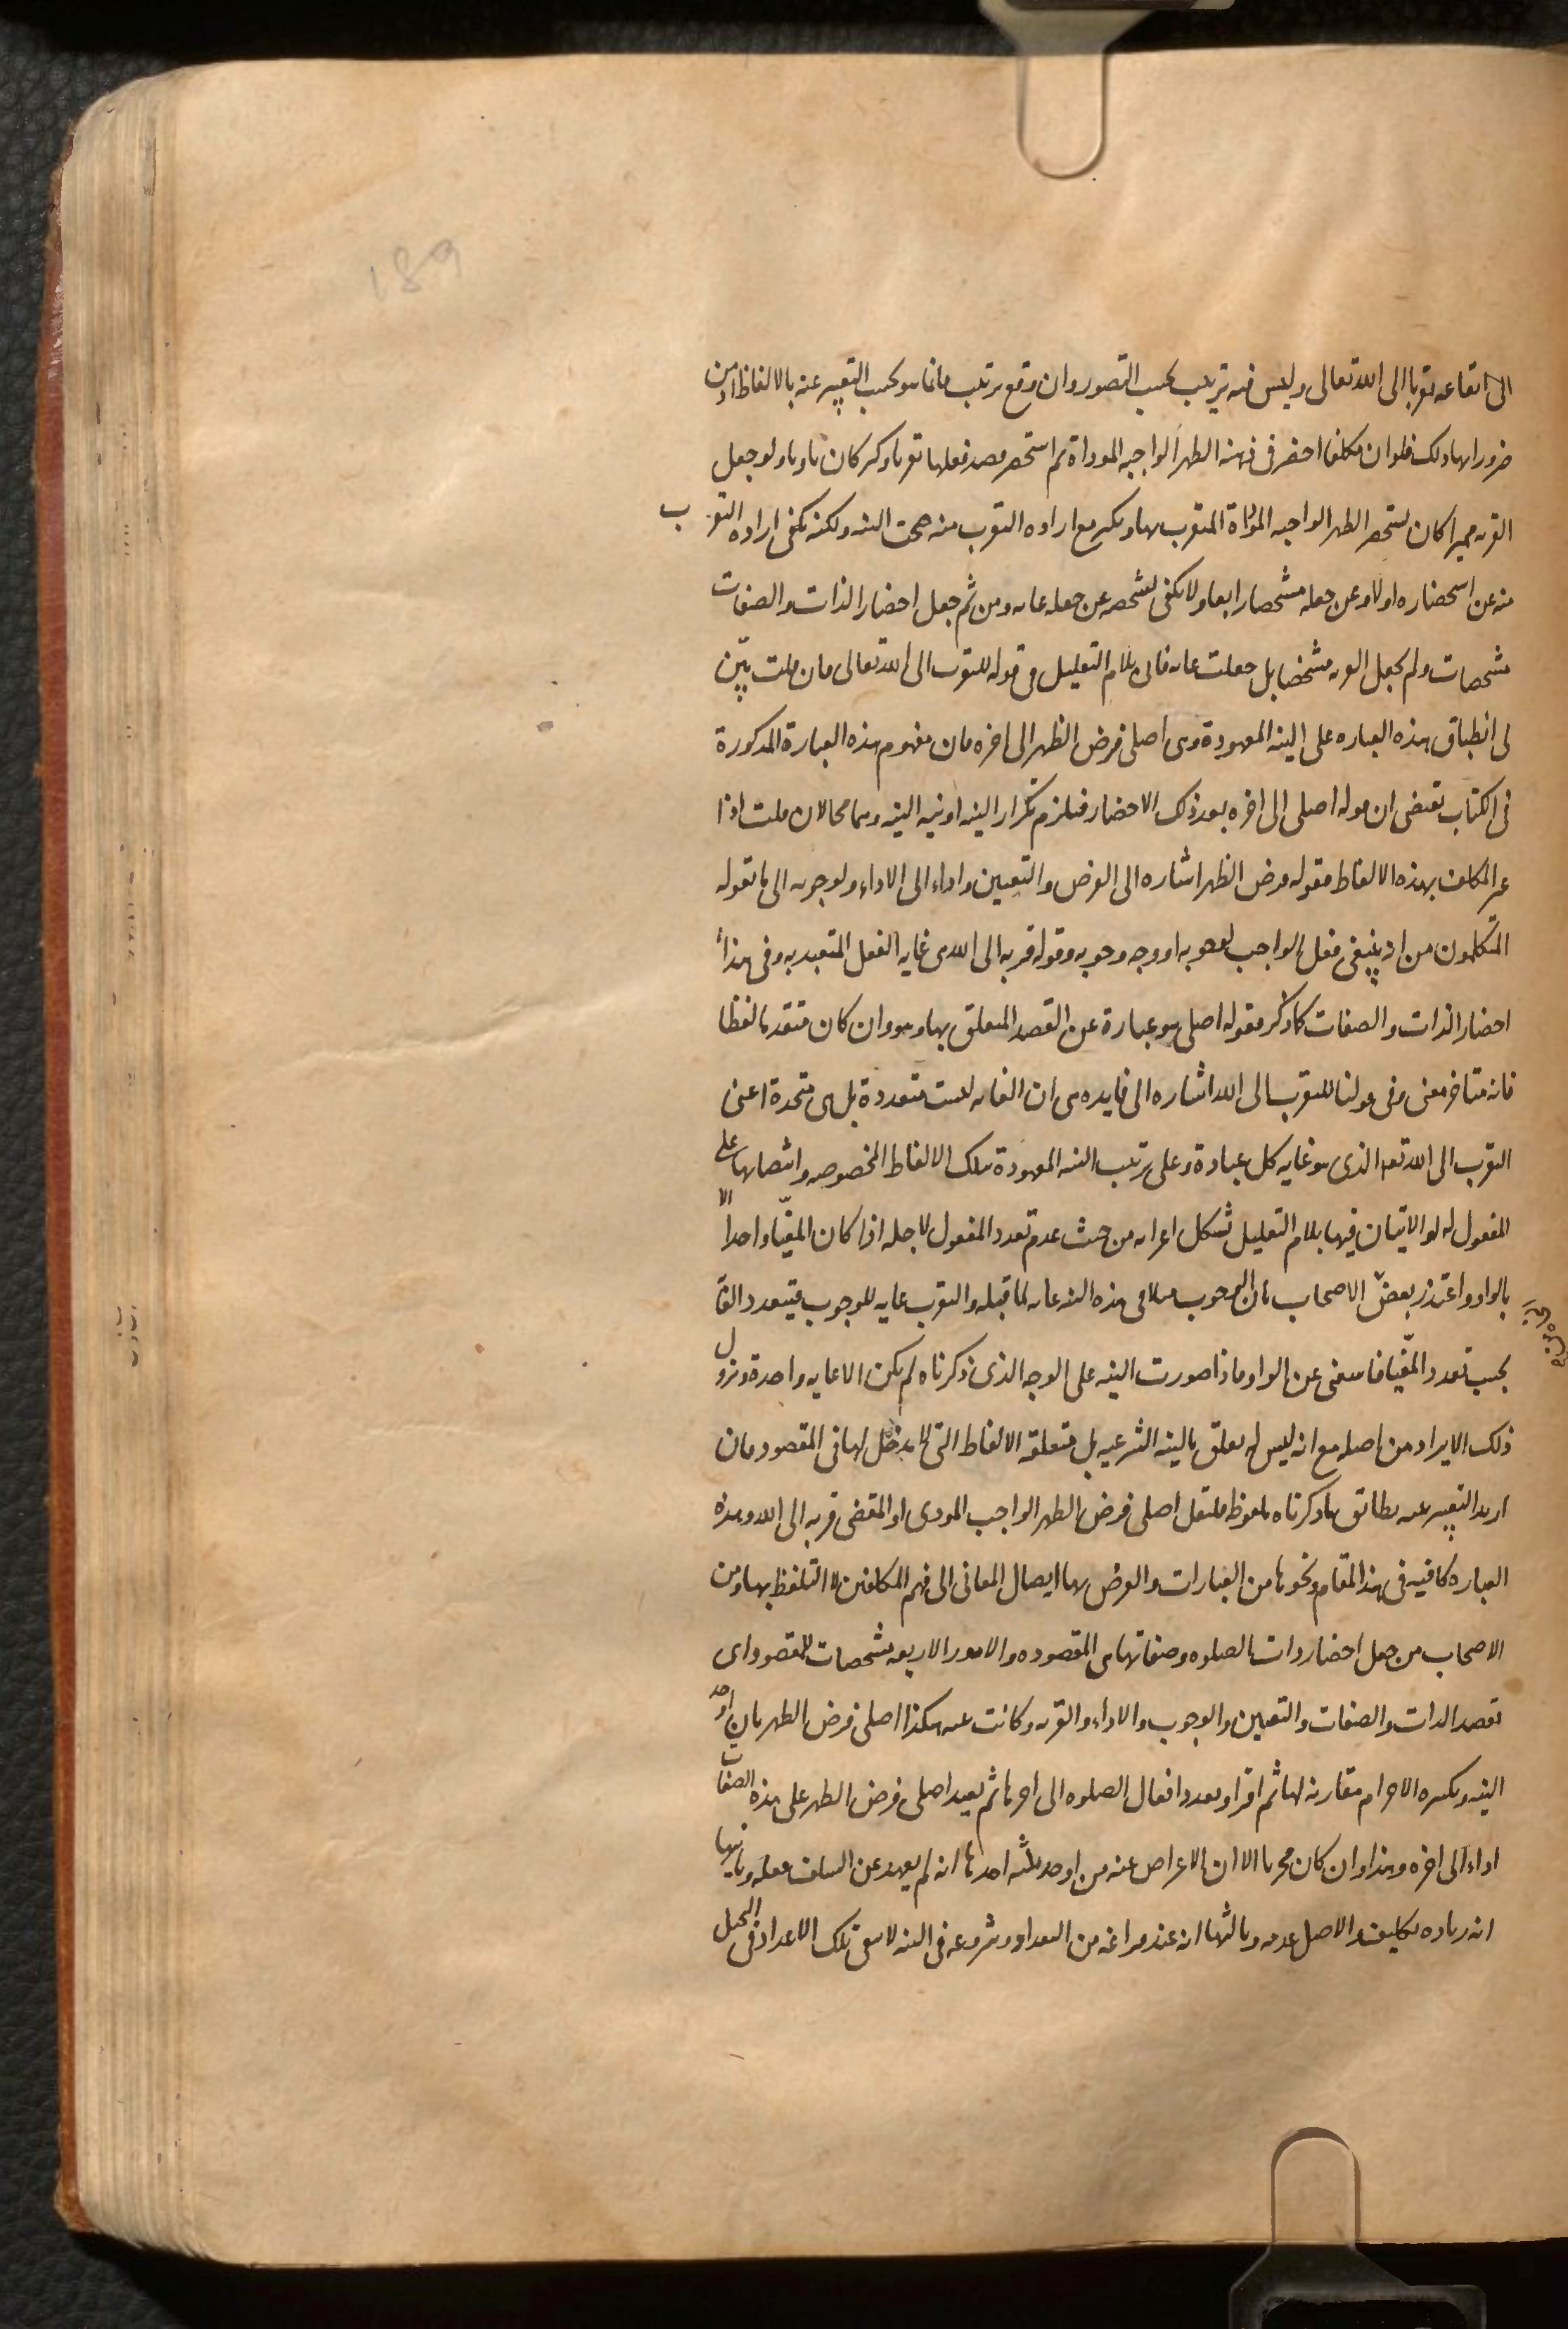 189
الى ايقاعه تقربا الى الله تعالى وليس فيه ترتيب بحسب التصور وان وقع ترتيب فانما هو بحسب التعبير عنه بالالفاظ اذ من
ضرورتها ذلك فلو ان مكلفا احضر فى ذهنه الظهر الواجبه المؤداة ثم استحضر قصد فعلها تقربا وكبر كان ناويا ولو جعل
القربه مميزا كان يستحضر الظهر الواجبه المؤداة المتقرب بها ويكبر مع اراده التقرب منه صحت النيه ولكنه يكفى اراده التقرب
منه عن استحضاره اولا وعن جعله مشخصا رابعا ولا يكفى تشخصه عن جعله غايه ومن ثم جعل احضار الذات والصفات
مشخصات ولم يجعل القربه مشخصا بل جعلت غايه فاتى بلام التعليل فى قوله للتقرب الى الله تعالى فان قلت بيّن
لى انطباق هذه العباره على النيه المعهودة وهى اصلى فرض الظهر الى اخره فان مفهوم هذه العبارة المذكورة
فى الكتاب تقتضى ان قوله اصلى الى اخره بعد ذلك الاحضار فيلزم تكرار النيه او نيه النيه وهما محالان قلت اذا
عبر المكلف بهذه الالفاظ فقوله فرض الظهر اشاره الى الفرض والتعيين واداء الى الاداء ولوجوبه الى ما يقوله
المتكلمون من انه ينبغى فعل الواجب لوجوبه او وجه وجوبه وقوله قربه الى الله هى غايه الفعل المتعبد به وفى هذا
احضار الذات والصفات كما ذكر فقوله اصلى هو عبارة عن القصد المتعلق بها وهو وان كان متقدما لفظا
فانه متاخر معنى وفى قولنا للتقرب الى الله اشاره الى فايده هى ان الغايه ليست متعددة بل هى متحدة اعنى
التقرب الى الله تعه الذى هو غايه كل عبادة وعلى ترتيب النيه المعهودة بتلك الالفاظ المخصوصه وانتصابها على
المفعول له او الاتيان فيها بلام التعليل تشكل اعرابه من حيث عدم تعدد المفعول لاجله اذا كان المغيّا واحدا الا
بالواو واعتذر بعض الاصحاب بان الوجوب مثلا فى هذه النيه غايه لما قبله والتقرب غايه للوجوب فيتعدد الغا
بحسب تعدد المغيّا فاستغنى عن الواو فاذا صورت النيه على الوجه الذى ذكرناه لم يكن الا غايه واحدة ونزول
ذلك الايراد من اصله مع انه ليس له تعلق بالنيه الشرعيه بل متعلقه الالفاظ التى لا مدخل لها فى المقصود فان
اريد التعبير عنه بطابق ما ذكرناه ملفوظ فليقل اصلى فرض الظهر الواجب المودى او المقضى قربه الى الله وهذه
العباره كافيه فى هذا المقام ونحوها من العبارات والغرض بها ايصال المعانى الى فهم المكلفين لا التلفظ بها ومن
الاصحاب من جعل احضار ذات الصلوه وصفاتها هى المقصوده والامور الاربعه مشخصات للمقصود اى
تقصد الذات والصفات والتعيين والوجوب والاداء والقربه وكانت عنه هكذا اصلى فرض الظهر بان اوجد
النيه وتكبيره الاحرام مقارنه لها ثم اقرا ويعدد افعال الصلوه الى اخرها ثم يعيد اصلى فرض الظهر على هذه الصفات
اداء الى اخره وهذا وان كان مجزيا الا ان الاعراض عنه من اوجه ثلثه احدها انه لم يعهد عن السلف فعله وثانيها
انه زياده تكليف والاصل عدمه وثالثها انه عند فراغه من التعداد وشروعه فى النيه لا تبقى تلك الاعداد فى المحل